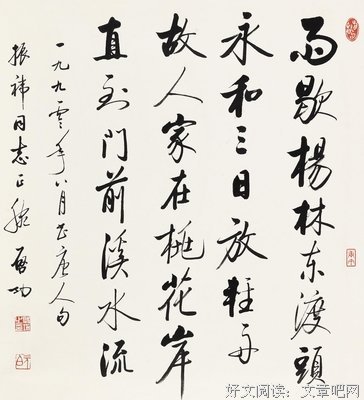 雨歇楊林東渡頭
永和三日放輕舟
故人家在桃花岸
直到門前溪水流
一九九零年八月书唐人句
振祎同志正腕 啟功
好文阅读：文章吧网